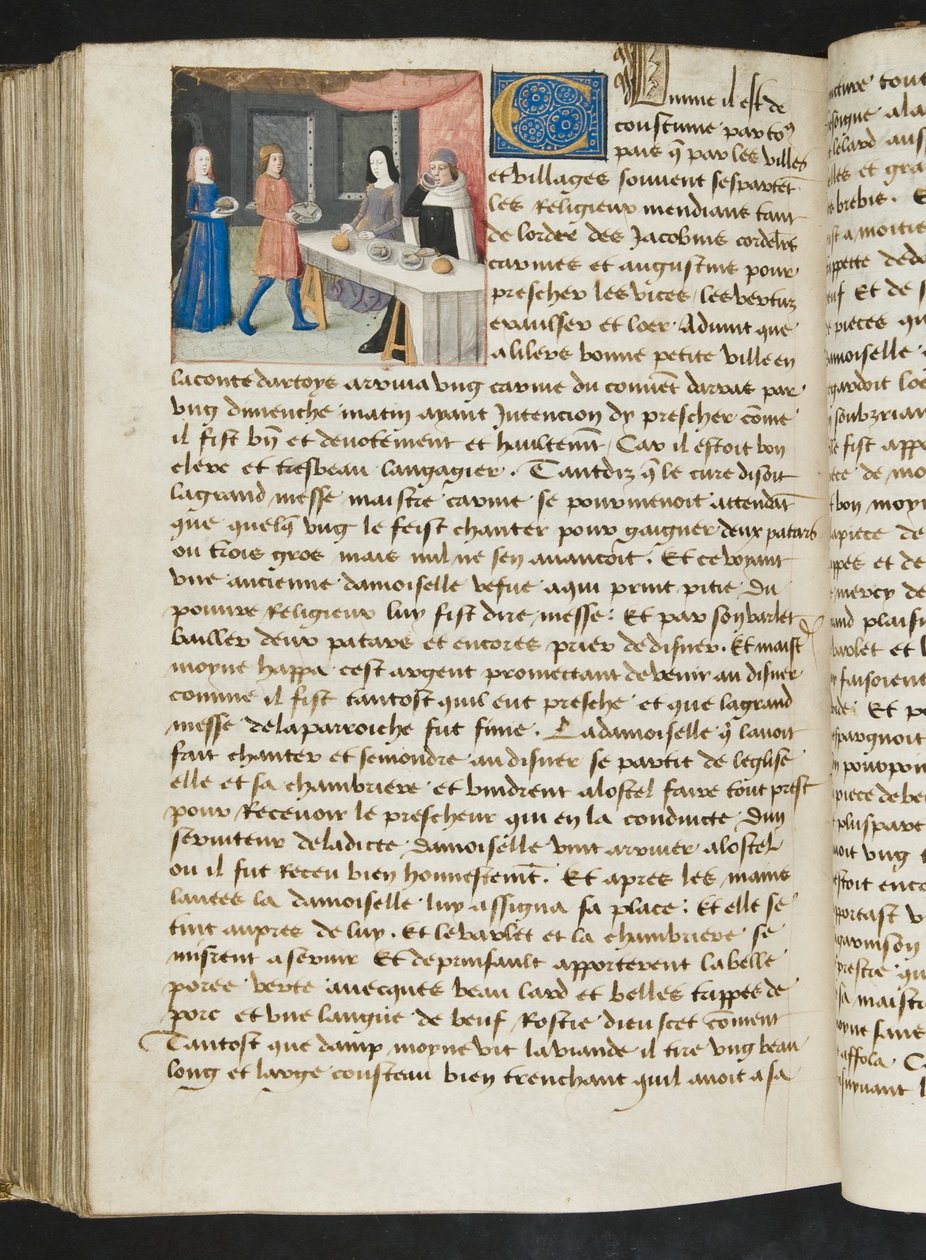 Comme il est de
coustume par to9
pais q̃ par les villes
et villages souvent sespartẽt
les Religieux mendians tant
de lordre des Jacobins cordeliers
carmes et augustins pour
prescher les vices / les vertuz
exaulser et loer / Advint que
a lilers bonne petite ville en
la conte dartoys arriva ung carme du couvẽt darras par
ung dimenche matin ayant Intencion dy prescher cõme
il fist bñ et devotement et haultemẽt / Car il estoit bon
clerc et tresbeau langagier . Tantdiz q̃ le cure disoit
la grand messe maistre carme se pourmenoit attendãt
que quelq̃ ung le feist chanter pour gaigner deux patars
ou trois gros mais nul ne sen avancoit . Et ce voyant
une ancienne damoiselle vefue a qui print pitie du
pouvre Religieux luy fist dire messe : Et par son varlet
bailler deux patars et encores prier de disner . Et maist
moyne happa cest argent promettant de venir au disner
comme il fist tantost quil eut presche et que la grand
messe de la parroiche fut finie . La damoiselle q̃ lavoit
fait chanter et semondre au disner se partit de leglise
elle et sa chambriere et vindrent a lostel faire tout prest
pour Recevoir le prescheur qui en la conduicte dun
serviteur de ladicte damoiselle vint arriver a lostel
ou il fut Receu bien honnestemẽt . Et apres les mains
lavees la damoiselle luy assigna sa place : Et elle se
tint aupres de luy . Et le varlet et la chambriere se
misrent a servir Et de prinsault apporterent la belle
poree verte avecques beau lard et belles trippes de
porc et une langue de beuf Rostie dieu scet cõment
Tantost que damp moyne vit la viande il tire ung beau
long et large cousteau bien trenchant quil avoit a sa